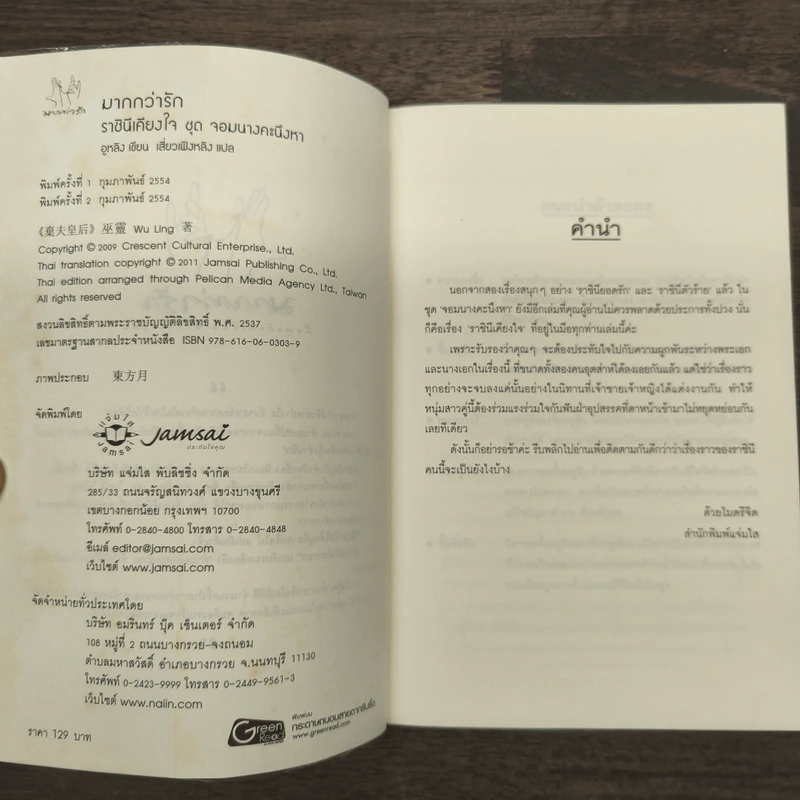 มากกว่ารัก
มากกว่ารัก
ราชินีเคียงใจ ชุด จอมนางคะนึงหา
อูหลิง เขียน เสี่ยวเฟิงหลิง แปล
พิมพ์ครั้งที่ 1 กุมภาพันธ์ 2554
พิมพ์ครั้งที่ 2 กุมภาพันธ์ 2554
《棄夫皇后》巫靈 Wu Ling 著
Copyright © 2009 Crescent Cultural Enterprise., Ltd.
Thai translation copyright © 2011 Jamsai Publishing Co., Ltd.
Thai edition arranged through Pelican Media Agency Ltd., Taiwan
All rights reserved
สงวนลิขสิทธิ์ตามพระราชบัญญัติลิขสิทธิ์ พ.ศ. 2537
เลขมาตรฐานสากลประจำหนังสือ ISBN 978-616-06-0303-9
ภาพประกอบ 東方月
จัดพิมพ์โดย
แจ่มใส
Jamsai
Jamsai
ประทับใจคุณ
บริษัท แจ่มใส พับลิชชิ่ง จำกัด
285/33 ถนนจรัญสนิทวงศ์ แขวงบางขุนศรี
เขตบางกอกน้อย กรุงเทพฯ 10700
โทรศัพท์ 0-2840-4800 โทรสาร 0-2840-4848
อีเมล์ editor@jamsai.com
เว็บไซต์ www.jamsai.com
จัดจำหน่ายทั่วประเทศโดย
บริษัท อมรินทร์ บุ๊ค เซ็นเตอร์ จำกัด
108 หมู่ที่ 2 ถนนบางกรวย-จงถนอม
ตำบลมหาสวัสดิ์ อำเภอบางกรวย จ.นนทบุรี 11130
โทรศัพท์ 0-2423-9999 โทรสาร 0-2449-9561-3
เว็บไซต์ www.naiin.com
ราคา 129 บาท
Green Read
พิมพ์บน
กระดาษถนอมสายตากรีนรี้ด
www.greenread.com
คำนำ
นอกจากสองเรื่องสนุกๆ อย่าง ‘ราชินียอดรัก’ และ ‘ราชินีตัวร้าย’ แล้ว ใน
ชุด ‘จอมนางคะนึงหา’ ยังมีอีกเล่มที่คุณผู้อ่านไม่ควรพลาดด้วยประการทั้งปวง นั่น
ก็คือเรื่อง ‘ราชินีเคียงใจ’ ที่อยู่ในมือทุกท่านเล่มนี้ค่ะ
เพราะรับรองว่าคุณๆ จะต้องประทับใจไปกับความผูกพันระหว่างพระเอก
และนางเอกในเรื่องนี้ ที่ขนาดทั้งสองคนอุตส่าห์ได้ลงเอยกันแล้ว แต่ใช่ว่าเรื่องราว
ทุกอย่างจะจบลงแค่นั้นอย่างในนิทานที่เจ้าชายเจ้าหญิงได้แต่งงานกัน ทำให้
หนุ่มสาวคู่นี้ต้องร่วมแรงร่วมใจกันฟันฝ่าอุปสรรคที่ดาหน้าเข้ามาไม่หยุดหย่อนกัน
เลยทีเดียว
ดังนั้นก็อย่ารอช้าค่ะ รีบพลิกไปอ่านเพื่อติดตามกันดีกว่าว่าเรื่องราวของราชินี
คนนี้จะเป็นยังไงบ้าง
ด้วยไมตรีจิต
สำนักพิมพ์แจ่มใส